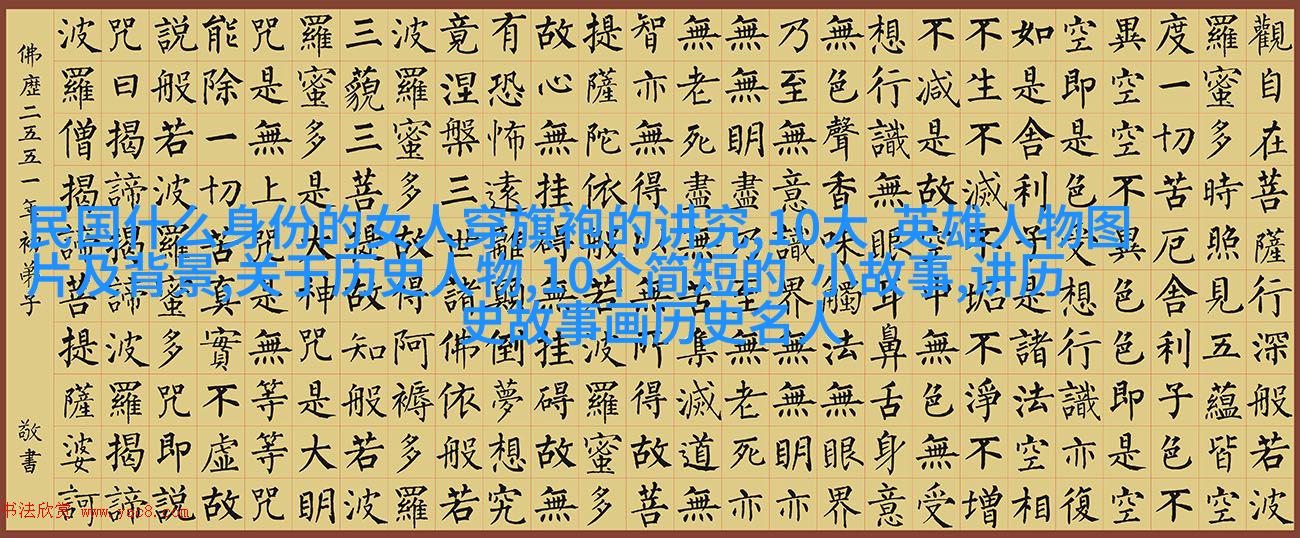 觀自在菩薩行深般若波
羅蜜多時照見五蘊皆空
度一切苦厄舍利子色不
異空空不異色色即是空
空即是色受想行識亦復
如是舍利子是諸法空相
不生不滅不垢不淨不增
不減是故空中無色無受
想行識無眼耳鼻舌身意
無色聲香味觸法無眼界
乃至無意識界無無明亦
無無明盡無至無老死亦
無老死盡無苦集滅道無
智亦無得以無所得故菩
提薩陀依般若波羅蜜多
故心無挂碍無挂碍故無
有恐怖遠離顛倒夢想究
竟涅槃三世諸佛依般若
波羅蜜多故得阿褥多羅
三藐三菩提故知般若波
羅蜜多是大神咒是大明
咒是無上咒是無等等咒
能除一切苦真實不虛故
説般若波羅蜜多咒即說
咒曰揭諦揭諦波羅揭諦
波羅僧揭諦菩提薩婆訶
佛歷二五五一年 衲弟子 敬書
民国什么身份的女人穿旗袍的讲究,10大 英雄人物图
片及背景,关于历史人物,10个简短的 小故事,讲历
史故事画历史名人
书法欣赏 www.yac8.com